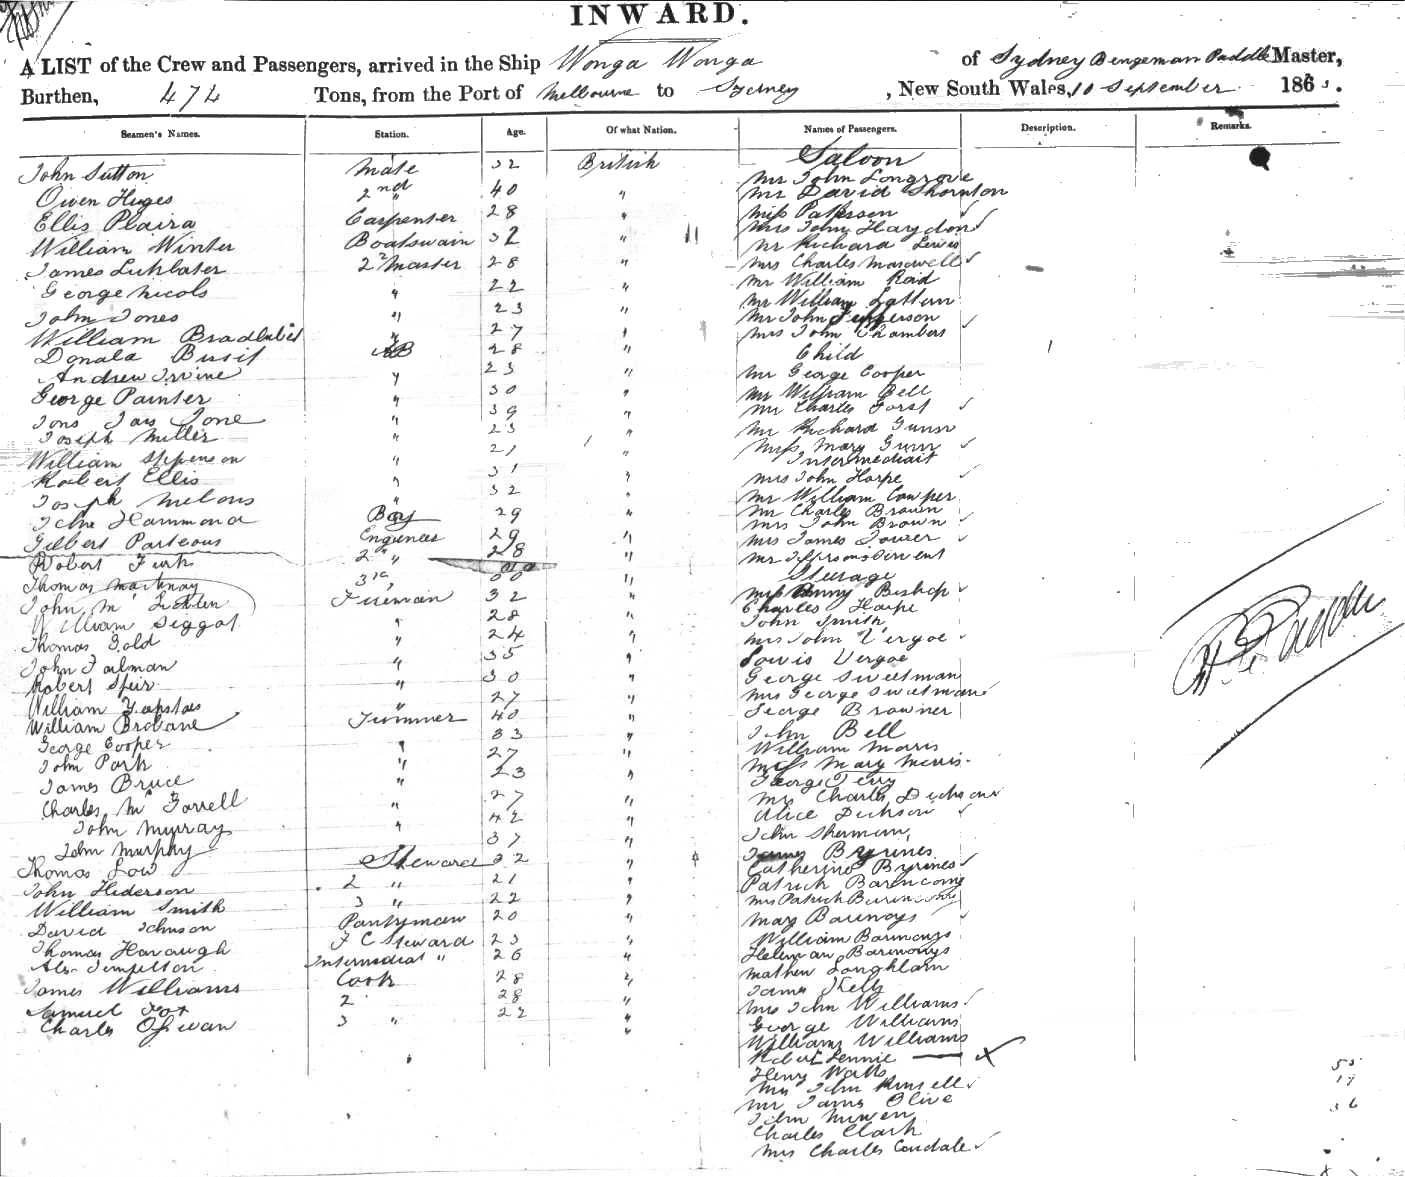 INWARD.
A LIST of the Crew and Passengers, arrived in the Ship Wonga Wonga of Sydney Bengeman Paddle Master,
Burthen, 474 Tons, from the Port of Melbourne to Sydney, New South Wales, 10 September 186
Seamen's Names. Station. Age. Of what Nation. Names of Passengers. Description. Remarks.
John Sutton Mate 32 British
Owen Huges 2nd " 40 "
Ellis Plaira Carpenter 28 "
William Winter Boatswain 32 "
James 2 Master 28 "
George Nicols " 22 "
John Jones " 23 "
William " 27 "
Donald AB 28 "
Andrew Irvine " 23 "
George Painter " 30 "
" 39 "
Joseph Miller " 23 "
William Stepenson " 21 "
Robert Ellis " 31 "
Joseph " 32 "
John Hammond Boy 29 "
Gilbert Parteous Engineer 29 "
Robert 2 " 28 "
Thomas 3rd "
John Mc Fireman 32 "
William Siggat " 28 "
Thomas Gold " 24 "
John " 35 "
Robert Speir " 30 "
William " 27 "
William Brobane Trimmer 40 "
George Cooper " 33 "
John Park " 27 "
James Bruce " 23 "
Charles Mc Farrell " 27 "
John Murray " 42 "
John Murphy 37 "
Thomas Low Steward 32 "
John Hiderson 2 " 21 "
William Smith 3 " 22 "
David Johnson Pantryman 20 "
Thomas Havaugh F C Steward 23 "
Alx Tempelton Intermediat " 26 "
James Williams Cook 28 "
Samuel Fox 2 28 "
Charles 3 " 22 "
Saloon
Mr John Longrove
Mr David Thornton
Miss Patterson
Mrs John Haydon
Mr Richard Lewis
Mrs Charles Maxwell
Mr William Raid
Mr William
Mr John Jepperson
Mrs John Chambers
Child
Mr George Cooper
Mr William Bell
Mr Charles Forst
Mr Richard Gunn
Miss Mary Gunn
Intermediait
Mrs John Harpe
Mr William Cowper
Mr Charles Brown
Mrs John Brown
Mrs James Tower
Mr
Steerage
Miss Anny Bishop
Charles Harpe
John Smith
Mrs John Vergoe
Lowis Vergoe
George Sweetman
Mrs George Sweetman
George Browner
John Bell
William Morris
Miss Mary Morris
George Terry
Mrs Charles Dickson
Alice Dickson
John Sherman
James Byrines
Catherine Byrines
Patrick
Mrs Patrick
Mary
William
Mathew Loughlam
James Kelly
Mrs John Williams
George Williams
William Williams
Robert Lennie
Henry Watts
Mrs John Runsell
Mr James Olive
John
Charles Clark
Mrs Charles Condale